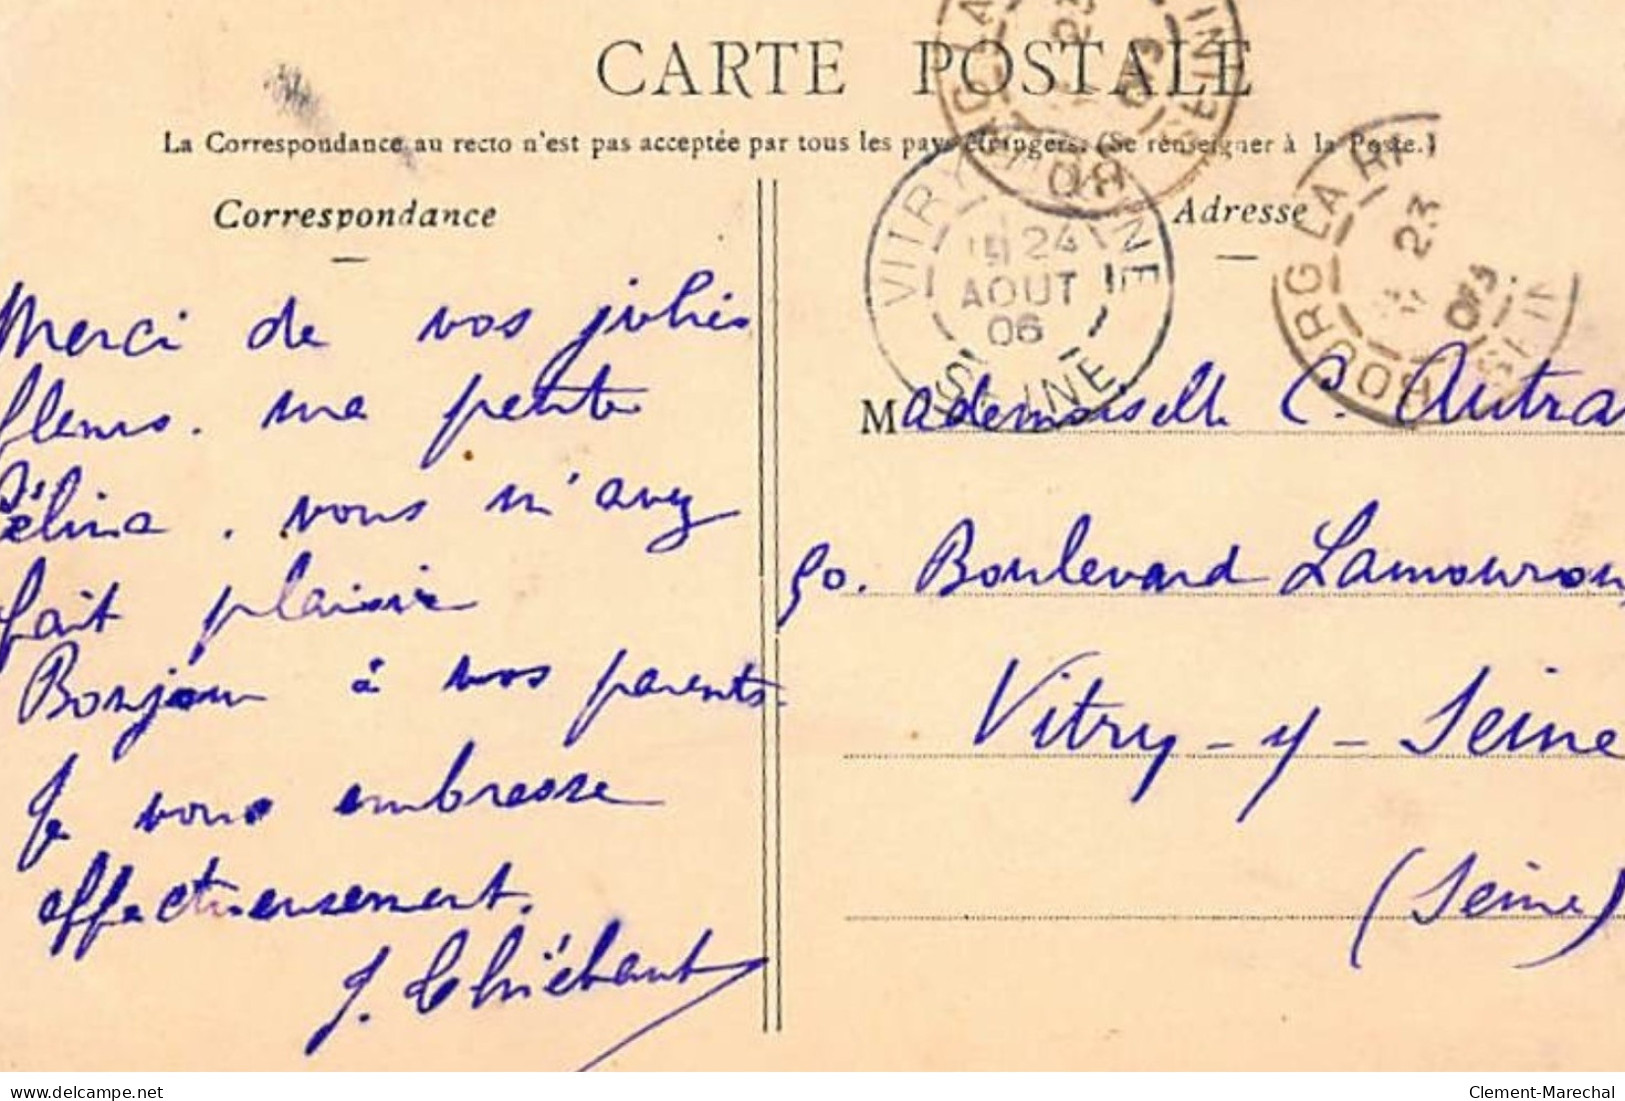 CARTE POSTALE
La Correspondance au recto n'est pas acceptée par tous les pays étrangers. (Se renseigner à la Poste.)
Correspondance
Merci de vos jolies
fleurs. ma petite
Célina. vous m'avez
fait plaisir
Bonjour à vos parents.
Je vous embrasse
affectueusement.
J. Thiébaut
Adresse
Mademoiselle C. Autra
50. Boulevard Lamouroux
Vitry-y-Seine
(Seine)
BOURG LA SEINE
23
VITRY SEINE
24
AOUT
06
SEINE
BOURG LA REI SEIN
23
delcampe.net
Clement-Marechal